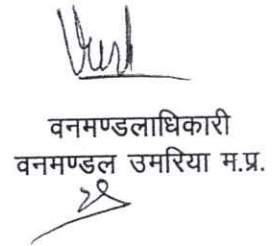 वनमण्डलाधिकारी
वनमण्डल उमरिया म.प्र.